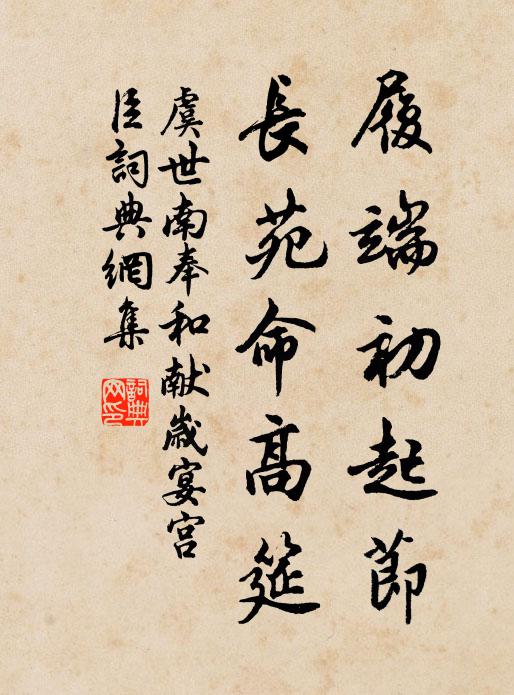 履端初起節
長苑命高筵
虞世南奉和献歲宴宮
臣詞典網集
詞典網印